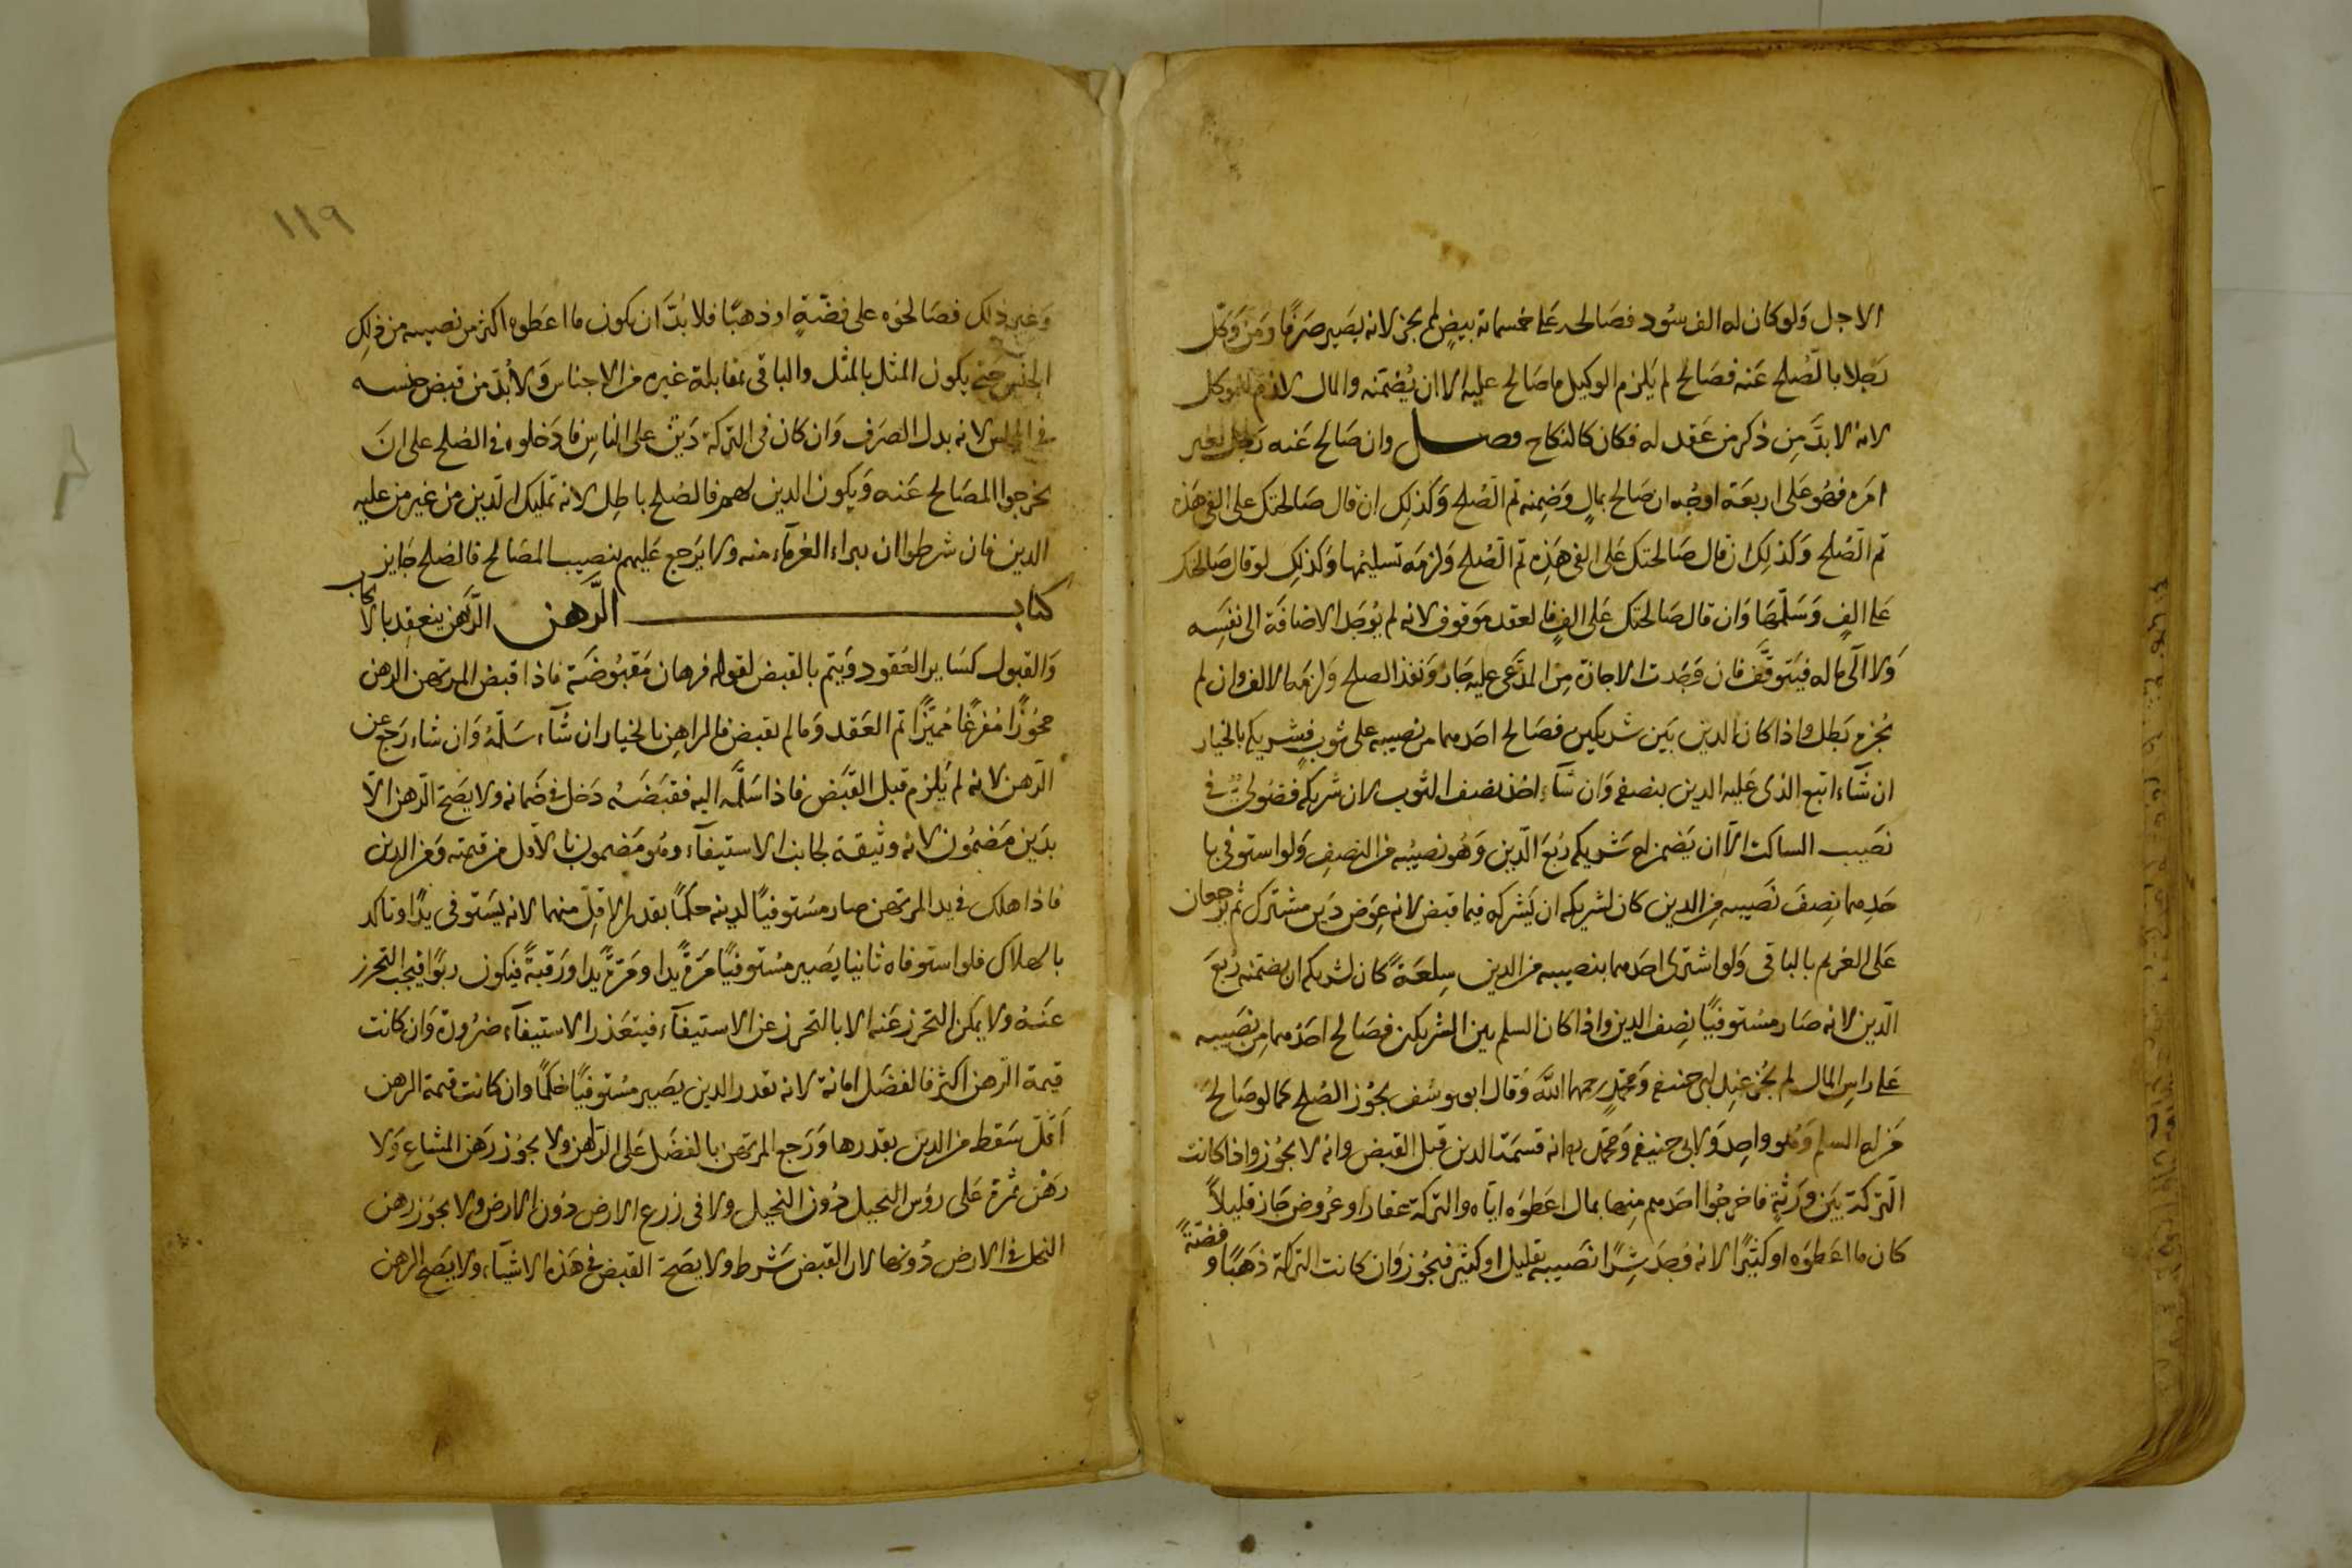 الاجل وَلو كان له الف سُود فصَالحه عَلى خمسمائة بيضٍ لم يجز لانه يصَير صَرفًا ومَن وَكّل
رَجلا بالصُلح عَنه فصَالح لم يَلزم الوكيل ما صَالح عليه الا ان يُضمّنه والمال لازم للموكل
لانه لا بدَّ مِن ذكر من عَقد له فكان كالنكاح فصل وان صَالح عَنه رَجل بغير
امَره فهُو عَلى اربعَة اوجُه ان صَالح بمالٍ وَضمِنه تم الصُلح وَكذلِك ان قال صَالحتك على الفى هَذه
تم الصُلح وَكذلِك ان قال صَالحتك عَلى الفى هَذِه تم الصُلح وَلزمَه تسليمُها وَكذلِك لو قال صَالحتك
عَلى الفٍ وَسَلّمَها وَان قال صَالحتك عَلى الفٍ فالعقد مَوقوف لانه لم يُوجَد الاضافَة الى نفسَه
وَلا الى ماله فيَتوقَّف فان وَجَدت الاجازة مِن المدَّعى عليه جَاز وَنفذ الصلح وَلزمَه الالف وان لم
يُجزه بَطل واذا كان الدين بَين شريكين فصَالح احَدهما من نصيبه على ثوبٍ فشريكه بالخيار
ان شَآء اتبع الذى عَليه الدين بنصفه وَان شَآء اخذ نصف الثوب لان شريكه فضُولىٌّ فى
نصَيب الساكت الاّ ان يَضمن له شريكه رُبعَ الدّين وَهُو نصيبُه من النصِفِ وَلو استوفى با
حَدِهما نِصفَ نَصيبه مِن الدين كان لشريكه ان يَشركه فيما قبض لانه عِوَض دَين مشترك ثم يرجعان
عَلى الغريم بالباقى وَلو اشترى احَدهما بنصيبه من الدين سِلعَةً كان لشريكه ان يضمّنه رُبعَ
الدّين لانه صَار مسُتوفيًا نِصف الدين واذا كان السلم بين الشريكين فصَالح احَدهما مِن نصَيبه
عَلى راسِ المال لم يجُز عِند ابى حنيفه وَمحمّدٍ رحمهما اللّه وَقال ابو يوسُف يجُوز الصُلح كما لو صَالحَ
مَن له السلم وَهُو واحِد وَلابى حنيفه وَمحمّد رح انه قسمَة الدين قبل القبض وانه لا يجُوز واذا كانت
الّتركة بَين ورَثةٍ فاخرجُوا احَدهم مِنها بمال اعَطوَه ايّاه والتركة عقار او عُروض جَاز قليلاً
كان ما اعَطوَه او كثيرًا لانه وَجَد شِرًا نصَيبه بقليل او كثير فيجُوز وَان كانت التركة ذهَبًا و فضّةً
١١٩
وَغير ذلِك فصَالحُوه على فضّةٍ او ذهبًا فلا بُدَّ ان يكون ما اعَطوه اكثر من نصيبه من ذلِك
الجنس حَتى يكون المثل بالمثل والباقى بمقابلة غيره من الاجناس وَلا بُدّ من قبض جنسه
فى المجلس لانه بدل الصَرف وَان كان فى التركة دَينٌ على الناسِ فادَخلوه فى الصُلح على انَ
يخرجوا المصَالح عَنه وَيكون الدين لهم فالصُلح باطِل لانه تمليك الدّين من غير من عليه
الدين فان شرطوا ان يبراء الغرمآء منه ولا يَرجع عَليهم بنصيب المصَالح فالصُلح جَايز
كتاب الرّهن الرَّهَن ينعقِد بالايجاب
وَالقبول كسَاير العُقود وَيتم بالقبض لقوله فرهان مَقبُوضَة فاذا قبض المرتهن الرهن
محوُزًا مُفرغًا مُميَّزًا تم العَقد وَما لم يقبض فالراهِن بالخيار ان شَآء سَلّمَهُ وَان شاء رَجع عن
الرّهن لانه لم يَلزم قبل القَبض فاذا سَلّمَه اليه فقبَضَهُ دَخل فى ضَمانه ولا يصَح الرّهن الاّ
بدَين مَضمُون لانه وثيقة لجانب الاستيفآء وهُو مَضمون بالاَقل من قيمته وَمن الدين
فاذا هلك فى يد المرتهن صار مسُتوفيًا لدينه حَكمًا بقدر الاقل منهما لانه يسَتوفى يدًا وتاكد
بالهلاك فلو استوفاه ثانيا يصَير مسُتوفيًا مَرةً يدا ومَرةً يدا ورَقبةً فيكون ربوًا فيجب التحرز
عَنهُ ولا يمكن التحرز عَنه الا بالتحرز عن الاستيفآء فيتعَذر الاستيفآء ضرُورة وَان كانت
قيمة الرّهن اكثر فالفضَل امانة لانه بقدر الدين يصَير مسُتوفيًا حُكمًا وان كانت قيمة الرهن
اَقلّ سَقط من الدين بقدرها وَرَجع المرتهَن بالفضَل عَلى الرّاهن ولا يجُوز رَهن المشاع وَلا
رهَن ثمَرة عَلى رؤس النخيل دُون النخيل ولا فى زرع الارض دُون الارض ولا يجُوز رهن
النخل فى الارض دُونها لان القبض شرط ولا يصَح القبض فى هَذه الاشيآء ولا يصَح الرهن